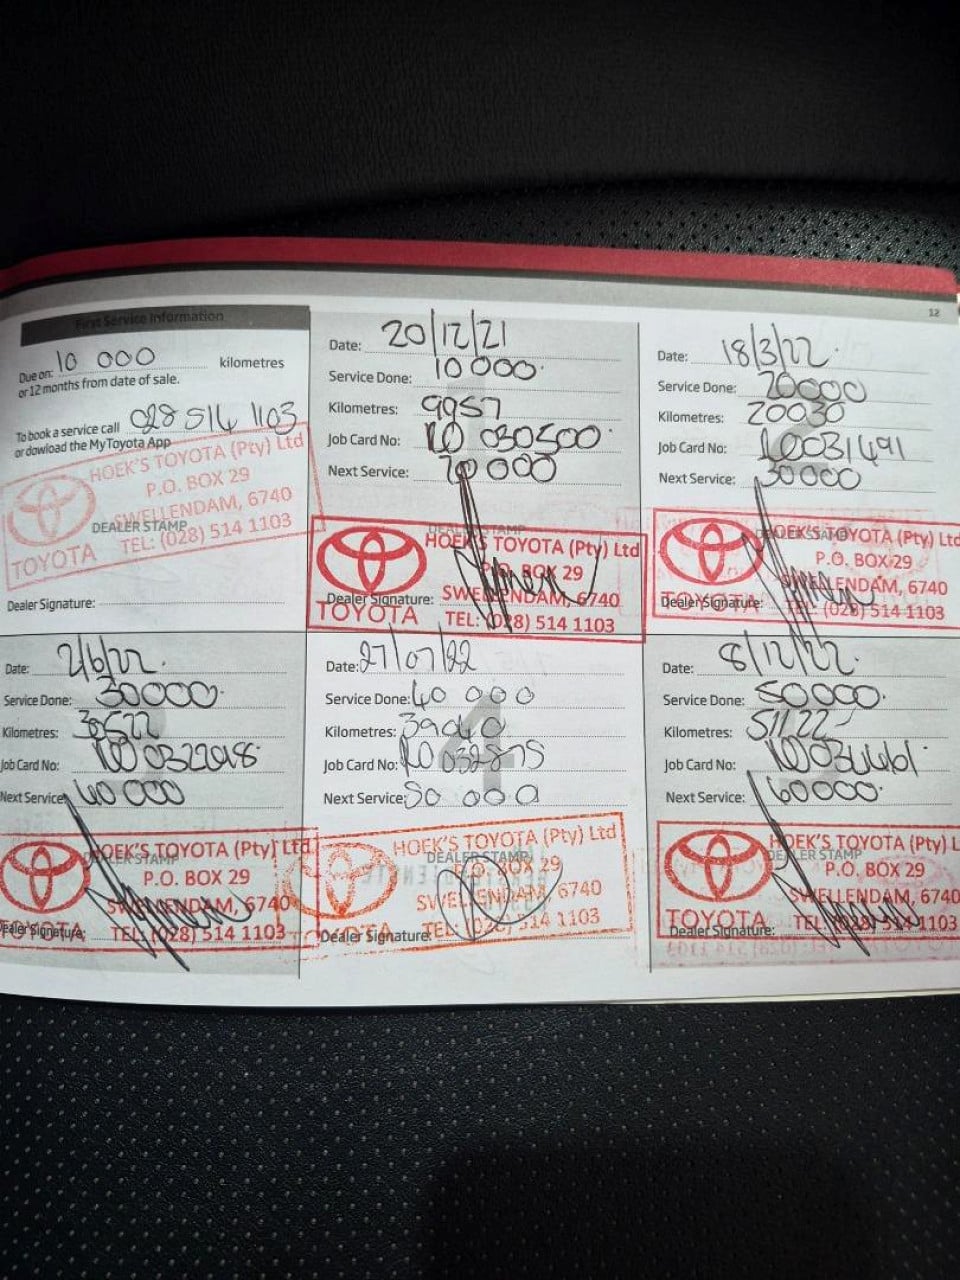 12
First Service Information
Due on: 10 000 kilometres
or 12 months from date of sale.
To book a service call 028 514 1103
or dowload the MyToyota App
HOEK'S TOYOTA (Pty) Ltd
P.O. BOX 29
SWELLENDAM, 6740
DEALER STAMP
TEL: (028) 514 1103
TOYOTA
Dealer Signature:
Date: 20/12/21
Service Done: 10 000
Kilometres: 9957
Job Card No: 10 030500
Next Service: 20 000
DEALER STAMP
HOEK'S TOYOTA (Pty) Ltd
P.O. BOX 29
Dealer Signature: SWELLENDAM, 6740
TOYOTA TEL: (028) 514 1103
Date: 18/3/22
Service Done: 20000
Kilometres: 20030
Job Card No: 10031491
Next Service: 30000
DEALER STAMP
HOEK'S TOYOTA (Pty) Ltd
P.O. BOX 29
SWELLENDAM, 6740
TOYOTA
Dealer Signature: TEL: (028) 514 1103
Date: 2/6/22
Service Done: 30000
Kilometres: 30522
Job Card No:
Next Service: 40 000
HOEK'S TOYOTA (Pty) Ltd
DEALER STAMP
P.O. BOX 29
SWELLENDAM, 6740
TOYOTA
Dealer Signature: TEL: (028) 514 1103
Date: 27/07/22
Service Done: 40 000
Kilometres: 39040
Job Card No:
Next Service: 50 000
4
HOEK'S TOYOTA (Pty) Ltd
DEALER STAMP
P.O. BOX 29
SWELLENDAM, 6740
TOYOTA
Dealer Signature: TEL: (028) 514 1103
Date: 8/12/22
Service Done: 50000
Kilometres: 51122
Job Card No:
Next Service: 60000
HOEK'S TOYOTA (Pty) L
DEALER STAMP
P.O. BOX 29
SWELLENDAM, 6740
TOYOTA
Dealer Signature: TEL: (028) 514 1103